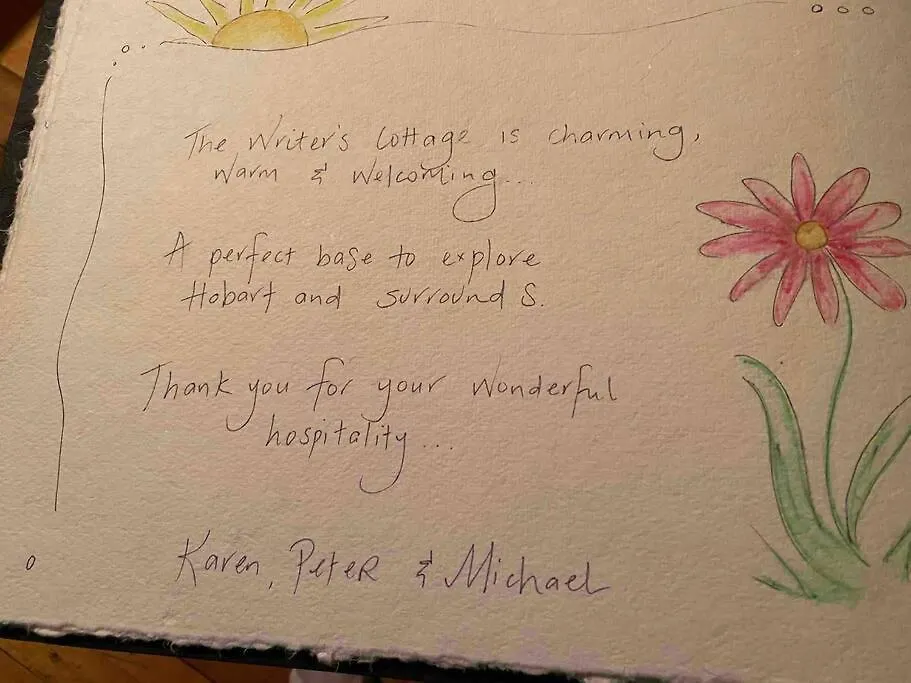 The Writer's Cottage is charming,
Warm & Welcoming...
A perfect base to explore
Hobart and surround s.
Thank you for your Wonderful
hospitality...
Karen, Peter & Michael